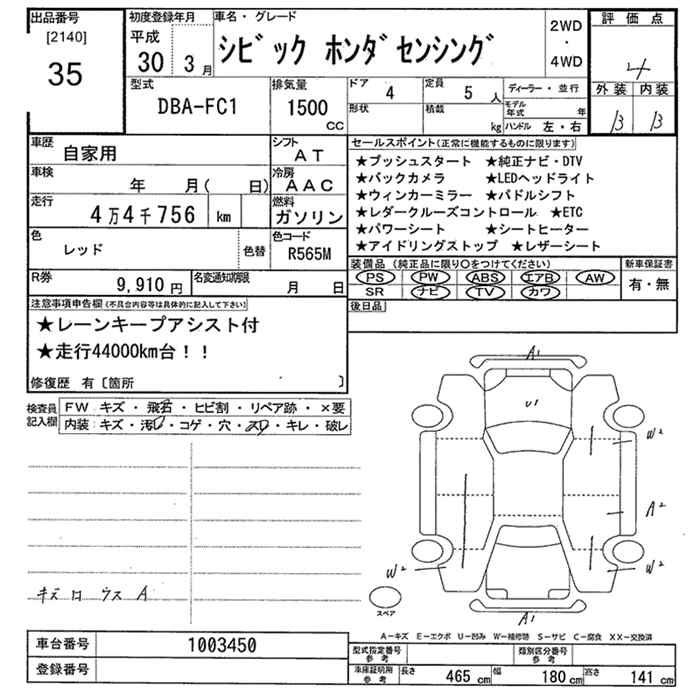 出品番号
[2140]
35
初度登録年月
平成
30 3月
車名・グレード
シビック ホンダセンシング
2WD
・
4WD
評価点
4
外装 内装
B B
型式
DBA-FC1
排気量
1500
CC
ドア 4
定員 5 人
形状
積載 kg
ディーラー・並行
モデル年式 年
ハンドル 左・右
車歴 自家用
シフト AT
車検 年 月( 日)
冷房 AAC
走行 4万4千756 km
燃料 ガソリン
色 レッド
色替
色コード R565M
R券 9,910円
名変通知期限 月 日
セールスポイント(正常に機能するものに限ります)
★プッシュスタート ★純正ナビ・DTV
★バックカメラ ★LEDヘッドライト
★ウィンカーミラー ★パドルシフト
★レダークルーズコントロール ★ETC
★パワーシート ★シートヒーター
★アイドリングストップ ★レザーシート
装備品 (純正品に限り○をつけてください)
PS PW ABS エアB AW
SR ナビ TV カワ
新車保証書
有・無
後日品
注意事項申告欄(不具合内容等は具体的に記入して下さい)
★レーンキープアシスト付
★走行44000km台!!
修復歴 有〔箇所 〕
検査員記入欄
FW キズ・飛石・ヒビ割・リペア跡・×要
内装:キズ・汚レ・コゲ・穴・スレ・キレ・破レ
キズロ ウス A
A1
U1
W2
A2
W2
W2
A1
スペア
A-キズ E-エクボ U-凹み W-補修跡 S-サビ C-腐食 XX-交換済
車台番号 1003450
登録番号
型式指定番号 参考
類別区分番号 参考
車庫証明用 参考
長さ 465 cm 幅 180 cm 高さ 141 cm